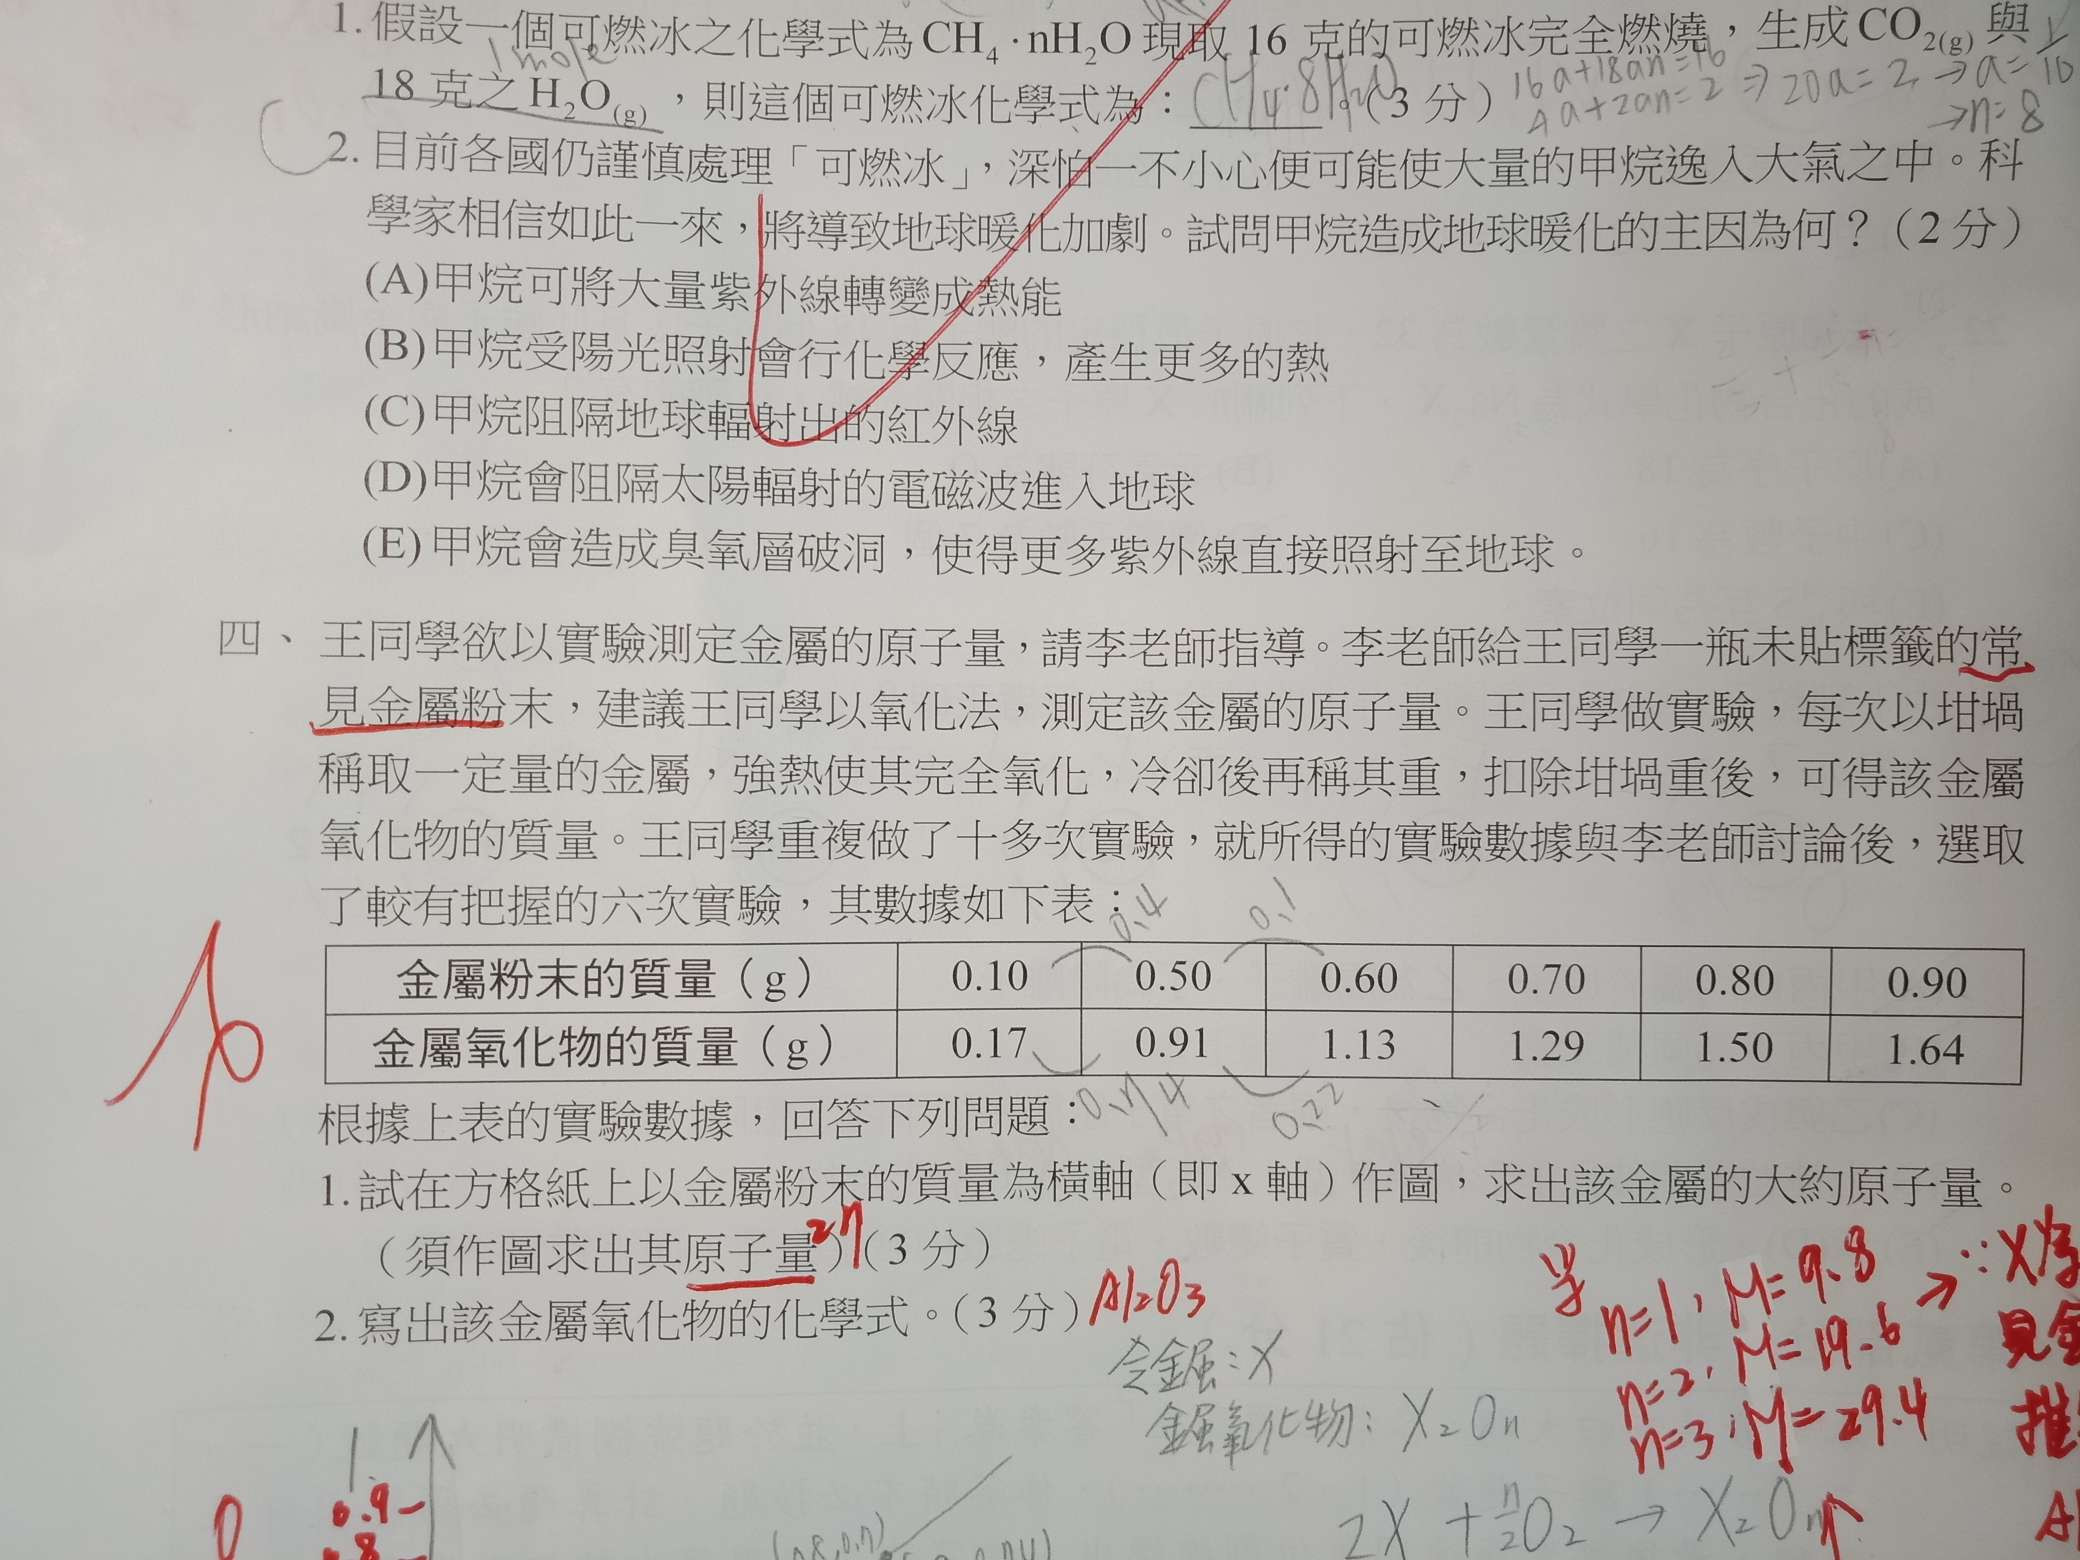 1. 假設一個可燃冰之化學式為 CH₄·nH₂O 現取 16 克的可燃冰完全燃燒，生成 CO₂₍g₎ 與
1 mole
18 克之 H₂O₍g₎，則這個可燃冰化學式為：CH₄·8H₂O。（3 分）
16a+18an=16
4a+2an=2 ⇒ 20a=2 → a=1/10
→n=8
C
2. 目前各國仍謹慎處理「可燃冰」，深怕一不小心便可能使大量的甲烷逸入大氣之中。科
學家相信如此一來，將導致地球暖化加劇。試問甲烷造成地球暖化的主因為何？（2 分）
(A)甲烷可將大量紫外線轉變成熱能
(B)甲烷受陽光照射會行化學反應，產生更多的熱
(C)甲烷阻隔地球輻射出的紅外線
(D)甲烷會阻隔太陽輻射的電磁波進入地球
(E)甲烷會造成臭氧層破洞，使得更多紫外線直接照射至地球。
四、王同學欲以實驗測定金屬的原子量，請李老師指導。李老師給王同學一瓶未貼標籤的常
見金屬粉末，建議王同學以氧化法，測定該金屬的原子量。王同學做實驗，每次以坩堝
稱取一定量的金屬，強熱使其完全氧化，冷卻後再稱其重，扣除坩堝重後，可得該金屬
氧化物的質量。王同學重複做了十多次實驗，就所得的實驗數據與李老師討論後，選取
了較有把握的六次實驗，其數據如下表：
0.4 0.1
金屬粉末的質量（g） 0.10 0.50 0.60 0.70 0.80 0.90
金屬氧化物的質量（g） 0.17 0.91 1.13 1.29 1.50 1.64
0.74 0.22
根據上表的實驗數據，回答下列問題：
1. 試在方格紙上以金屬粉末的質量為橫軸（即 x 軸）作圖，求出該金屬的大約原子量。
（須作圖求出其原子量）（3 分）
27
2. 寫出該金屬氧化物的化學式。（3 分）
Al₂O₃
n=1, M=9.8
n=2, M=19.6
n=3, M=29.4
令金屬：X
金屬氧化物：X₂Oₙ
2X + n/2 O₂ → X₂Oₙ
0.9